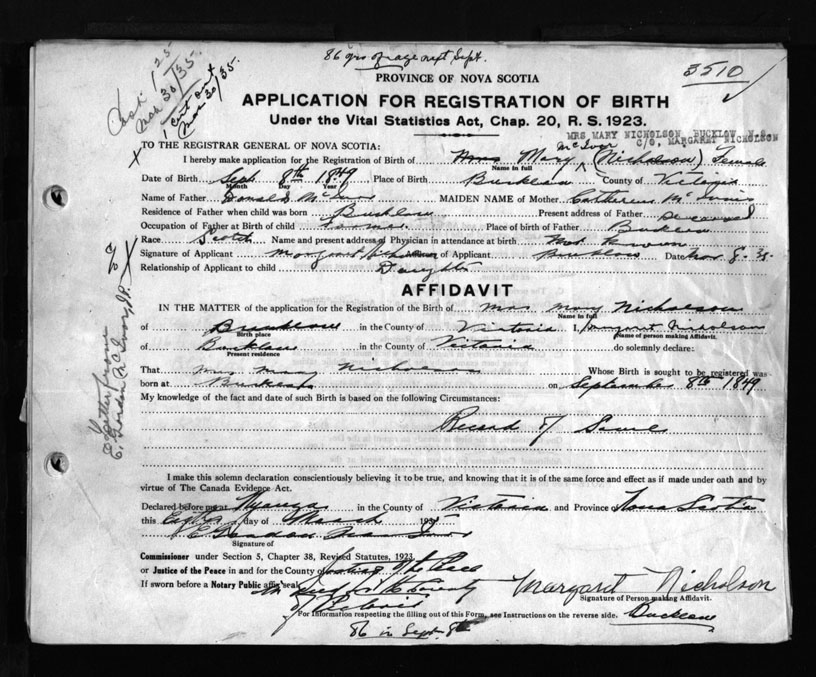 86 yrs of age next Sept.
3510
Cash 1.25
Mar 30/35.
1 cert out
Mar 30/35.
PROVINCE OF NOVA SCOTIA
APPLICATION FOR REGISTRATION OF BIRTH
Under the Vital Statistics Act, Chap. 20, R. S. 1923.
MRS MARY NICHOLSON, BUCKLOW N.S.
C/O. MARGARET NICHOLSON
TO THE REGISTRAR GENERAL OF NOVA SCOTIA:
I hereby make application for the Registration of Birth of Mary McIvor (Nicholson) Female
Name in full
Date of Birth Sept. 8th 1849 Place of Birth Bucklaw County of Victoria
Month Day Year
Name of Father Donald McIvor MAIDEN NAME of Mother Catherine McInnis
Residence of Father when child was born Bucklow Present address of Father Deceased
Occupation of Father at Birth of child Farmer Place of birth of Father Bucklow
Race Scotch Name and present address of Physician in attendance at birth Not known
Signature of Applicant Margaret Nicholson Address of Applicant Bucklow Date Mar 8-35
Relationship of Applicant to child Daughter
AFFIDAVIT
IN THE MATTER of the application for the Registration of the Birth of Mrs Mary Nicholson
Name in full
of Bucklow in the County of Victoria I, Margaret Nicholson
Birth place Name of person making Affidavit.
of Bucklaw in the County of Victoria do solemnly declare:
Present residence
That Mrs Mary Nicholson Whose Birth is sought to be registered was
born at Bucklow on September 8th 1849
My knowledge of the fact and date of such Birth is based on the following Circumstances:
Record of Same
I make this solemn declaration conscientiously believing it to be true, and knowing that it is of the same force and effect as if made under oath and by
virtue of The Canada Evidence Act.
Declared before me at Nyanza in the County of Victoria and Province Nova Scotia
this Eighth day of March 193
Signature of
Commissioner under Section 5, Chapter 38, Revised Statutes, 1923.
or Justice of the Peace in and for the County of Justice of the Peace
If sworn before a Notary Public affix seal in and for the County
of Victoria
Margaret Nicholson
Signature of Person making Affidavit.
For Information respecting the filling out of this Form, see Instructions on the reverse side. Bucklaw
86 in Sept. 8th
Letter from